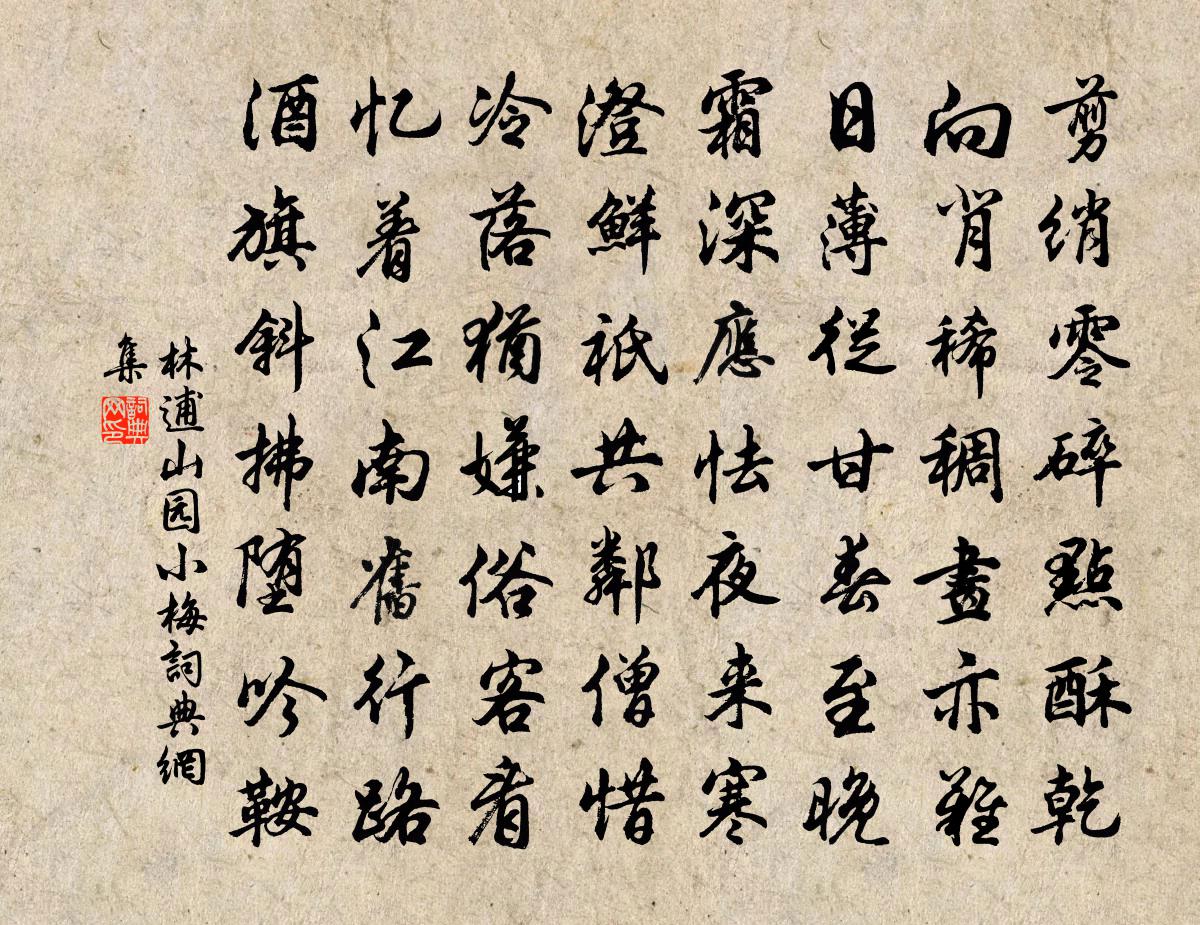 剪绡零碎點酥乾
向背稀稠畫亦難
日薄從甘春至晚
霜深應怯夜来寒
澄鮮祇共鄰僧惜
冷落猶嫌俗客看
忆着江南舊行路
酒旗斜拂堕吟鞍
林逋山园小梅詞典網
集
詞典
网印